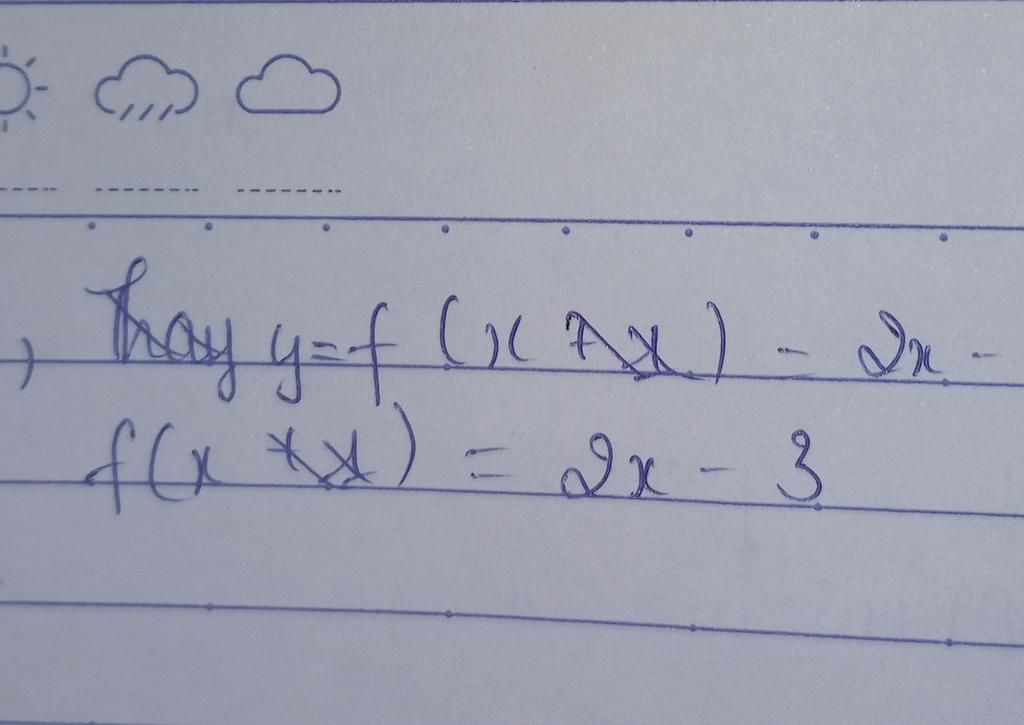 , Thay y=f (x + x) - 2x -
f(x + x) = 2x - 3